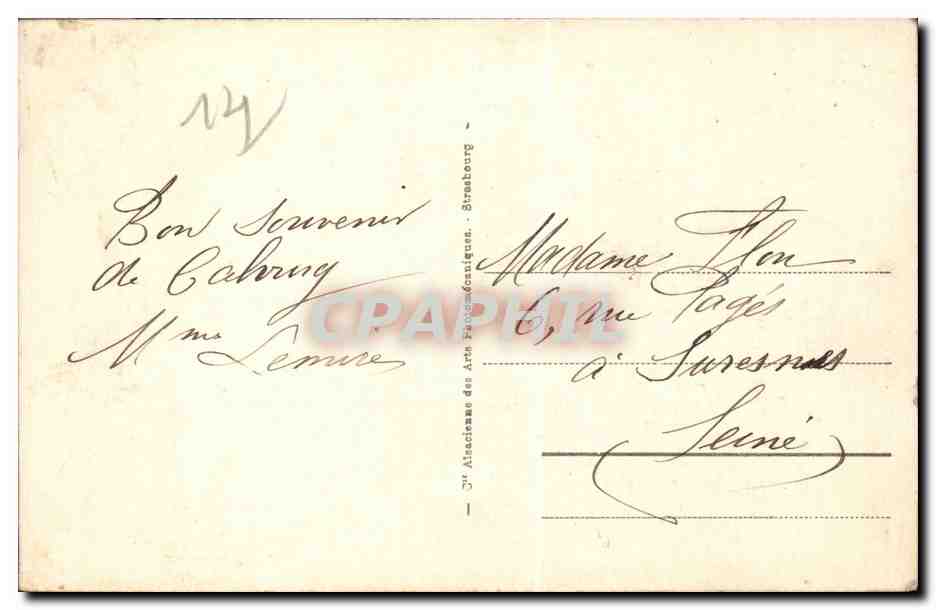 14
Bon souvenir
de Cabourg
Mme Lemire
— Cie Alsacienne des Arts Photomécaniques. - Strasbourg -
Madame Flon
6, rue Pagés
à Suresnes
Seine
CPAPHIL